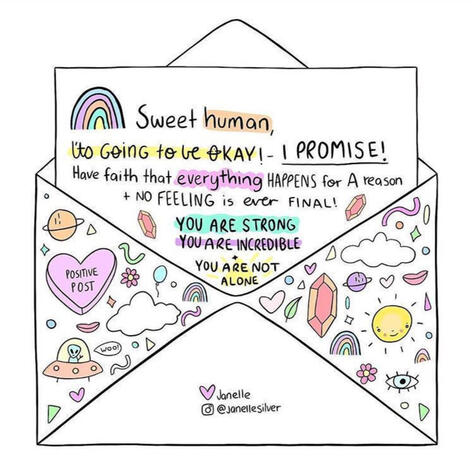 Sweet human,
Its GOING to be OKAY! - I PROMISE!
Have faith that everything HAPPENS for A reason
+ NO FEELING is ever FINAL!
YOU ARE STRONG
YOU ARE INCREDIBLE
+
YOU ARE NOT
ALONE
POSITIVE
POST
WOO!
Janelle
@janellesilver